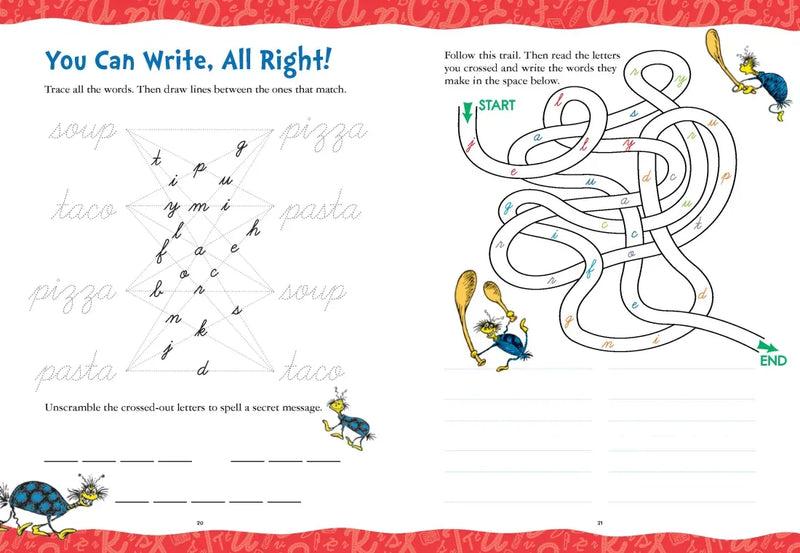 You Can Write, All Right!
Trace all the words. Then draw lines between the ones that match.
soup pizza
taco pasta
pizza soup
pasta taco
t i p u g
y m i
l f a e h
o c
b r
n k s
j d
Unscramble the crossed-out letters to spell a secret message.
20
Follow this trail. Then read the letters
you crossed and write the words they
make in the space below.
START
j e l l y
s a
r y
u p
r d c
u a g
u c c t
r i o
f
e d
g n i
END
21